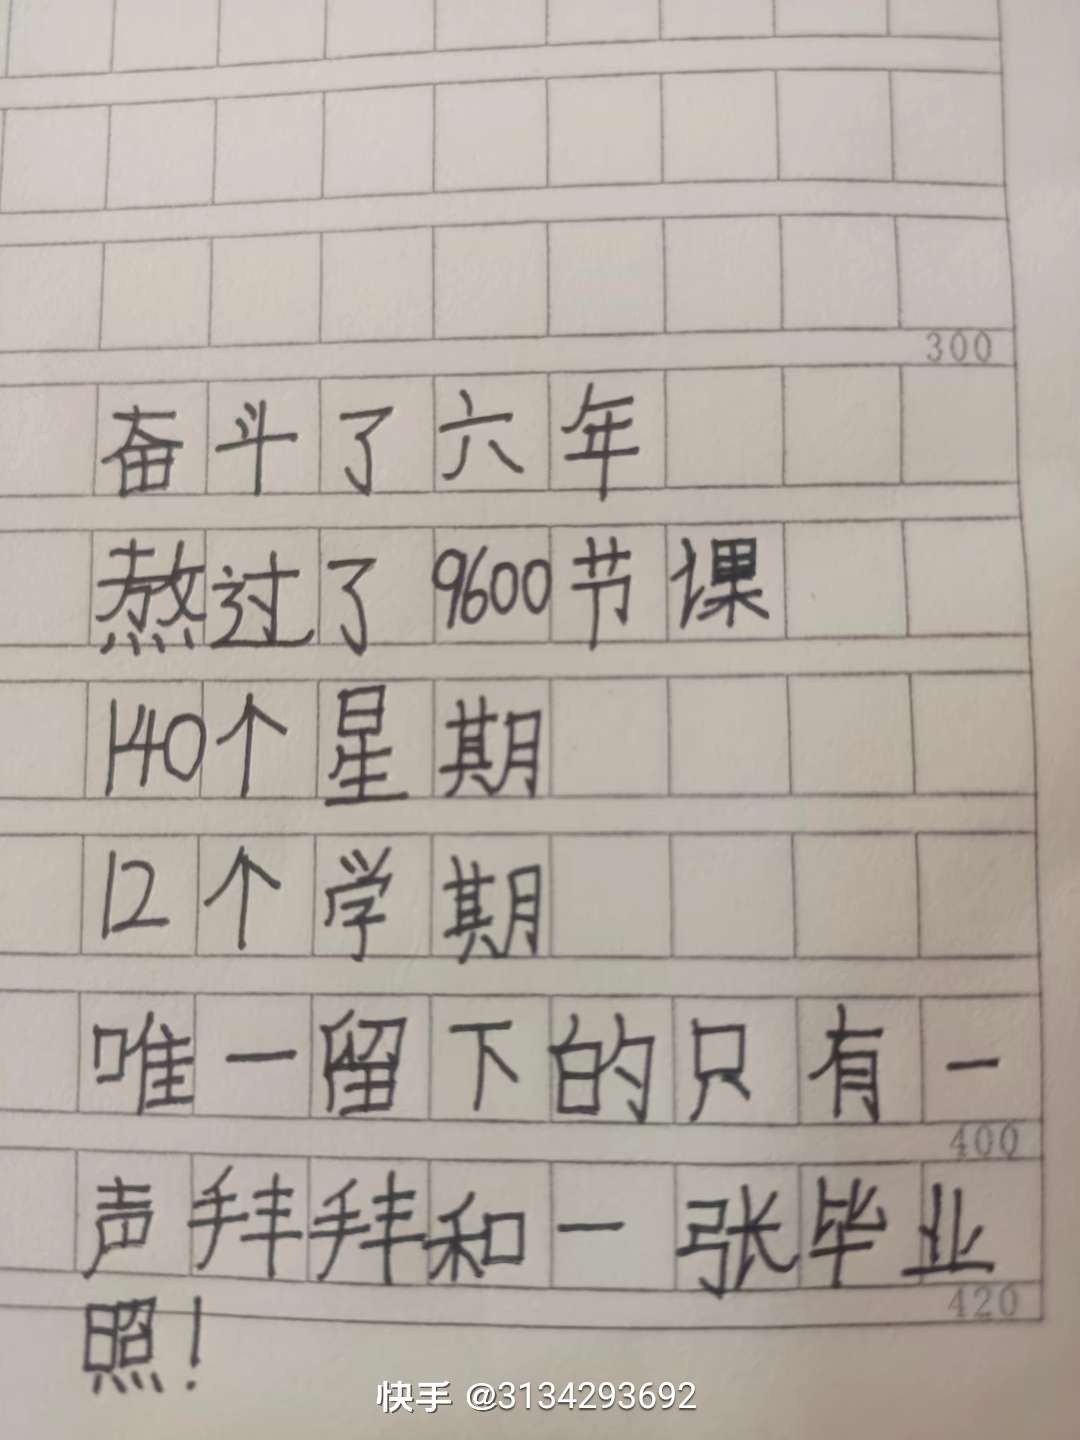 300
奋斗了六年
熬过了9600节课
140个星期
12个学期
唯一留下的只有一
400
声拜拜和一张毕业
420
照！
快手 @3134293692